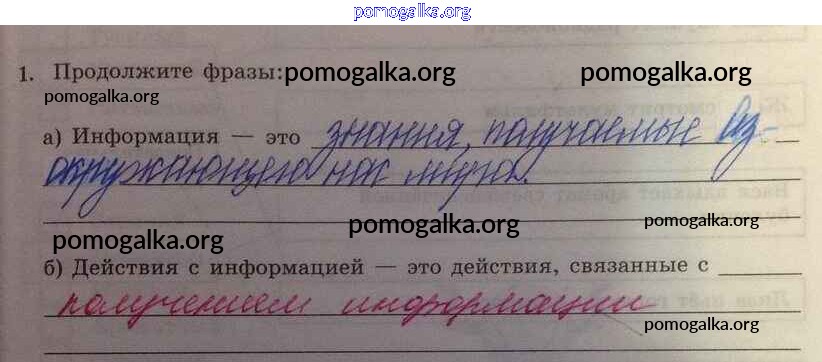 pomogalka.org
1. Продолжите фразы: pomogalka.org pomogalka.org
pomogalka.org
а) Информация — это знания, получаемые из
окружающего нас мира.
pomogalka.org pomogalka.org pomogalka.org
б) Действия с информацией — это действия, связанные с
получением информации
pomogalka.org